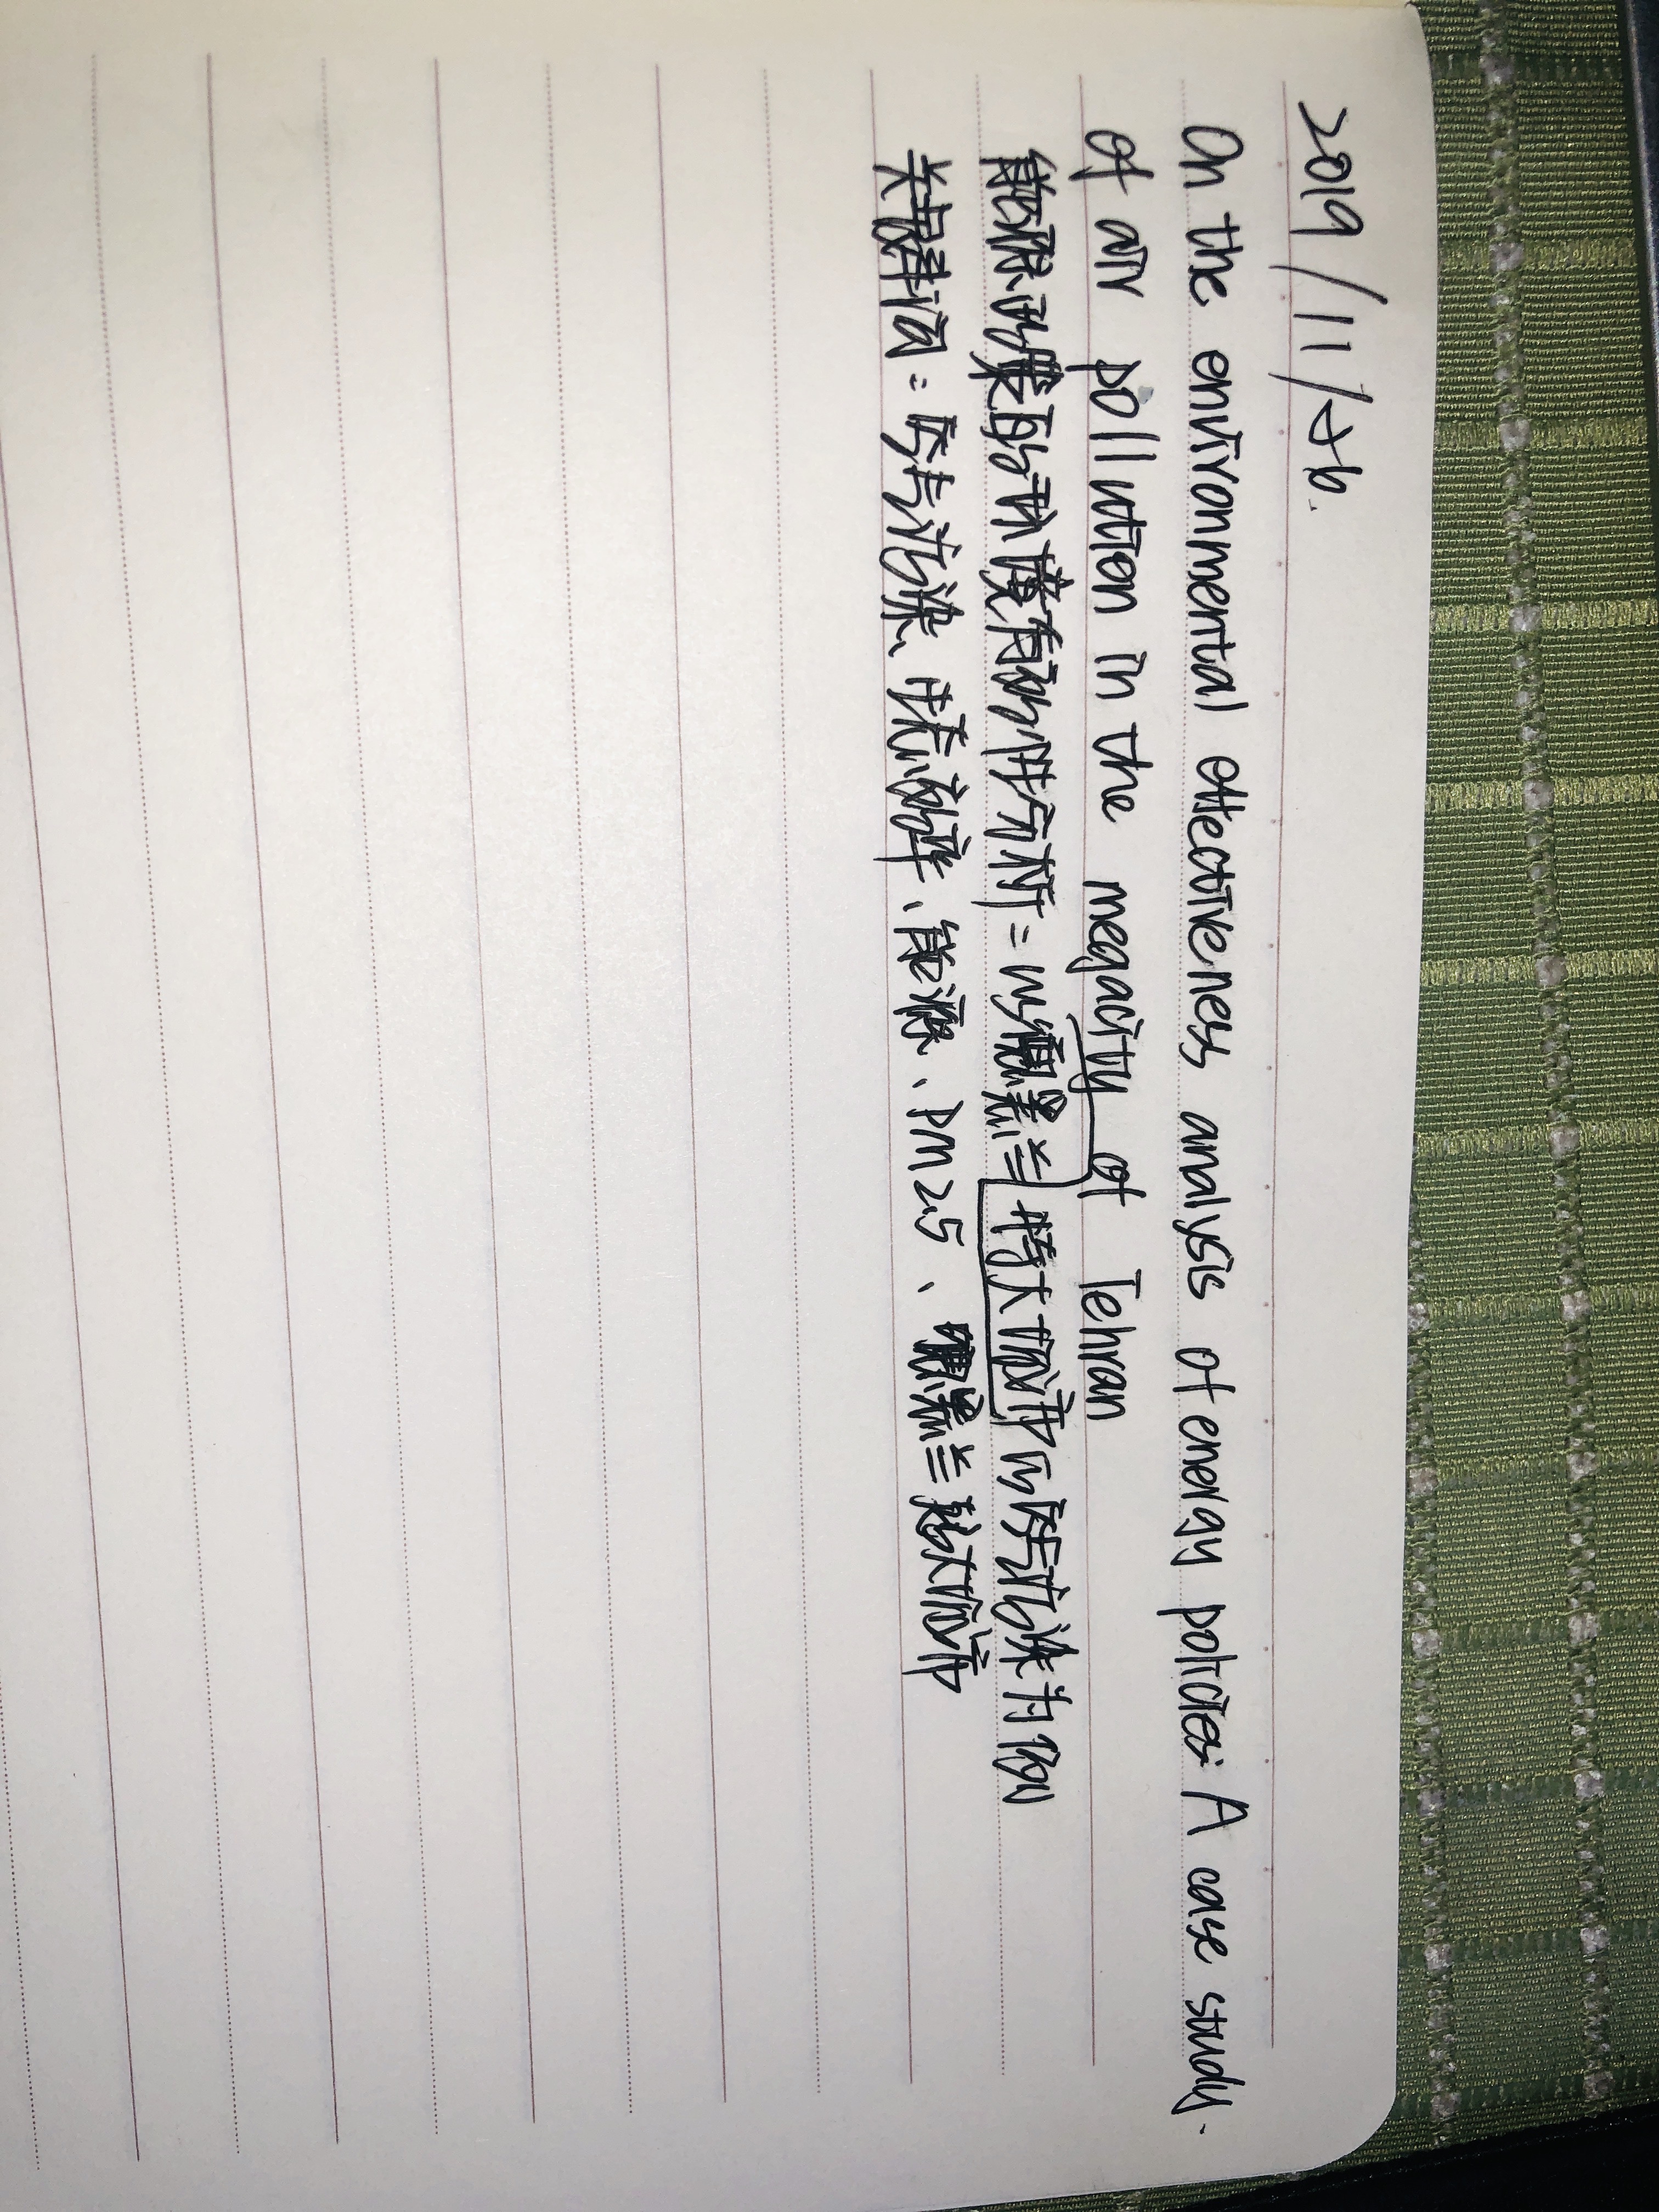 2019/11/26.
On the environmental effectiveness analysis of energy policies: A case study.
of air pollution in the megacity of Tehran
能源政策的环境有效性分析：以德黑兰特大城市的空气污染为例
关键词：空气污染、排放率、能源、PM2.5、德黑兰特大城市